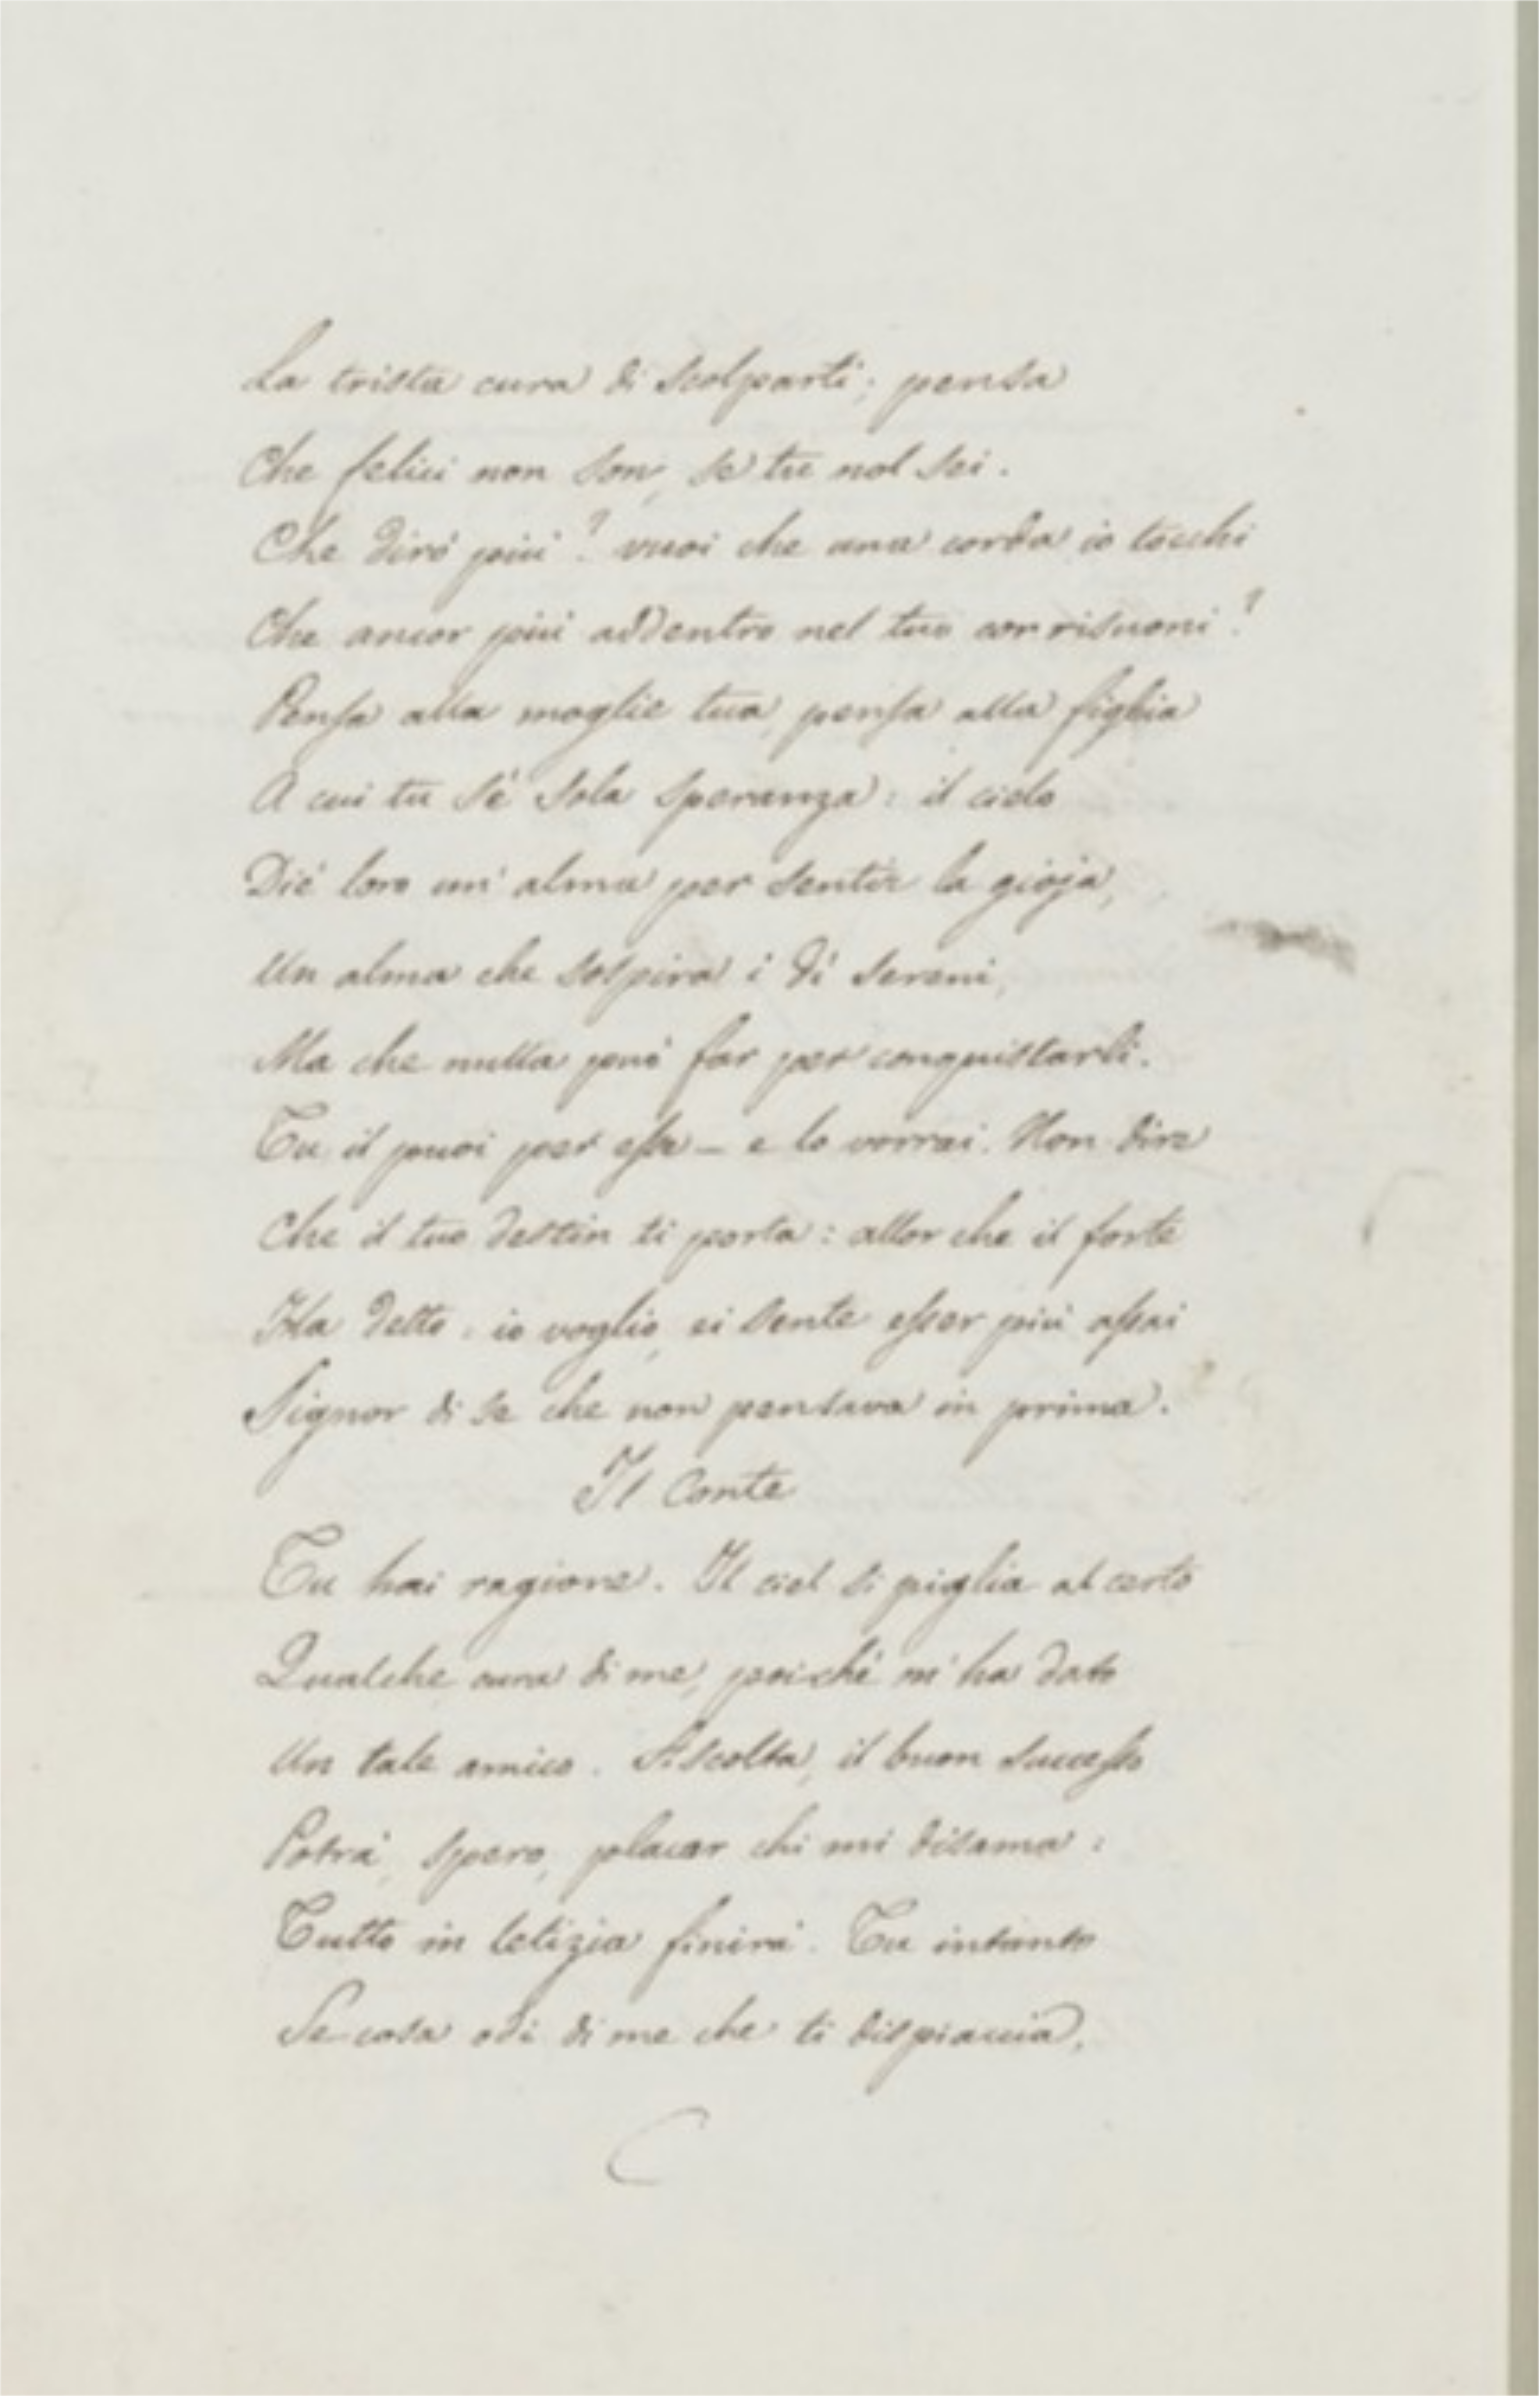 La trista cura di scolparti; pensa
Che felici non son, se tu nol sei.
Che dirò più? vuoi che una corda io tocchi
Che ancor più addentro nel tuo cor risuoni?
Pensa alla moglie tua, pensa alla figlia
A cui tu sé sola speranza: il cielo
Diè loro un' alma per sentir la gioja,
Un alma che sospira i dì sereni,
Ma che nulla può far per conquistarli.
Tu il puoi per esse – e lo vorrai. Non dire
Che il tuo destin ti porta: allor che il forte
Ha detto: io voglio, ei sente esser più assai
Signor di se che non pensava in prima.
Il Conte
Tu hai ragione. Il ciel si piglia al certo
Qualche cura di me, poiché m'ha dato
Un tale amico. Ascolta, il buon successo
Potrà, spero, placar chi mi disama:
Tutto in letizia finirà. Tu intanto
Se cosa odi di me che ti dispiaccia,